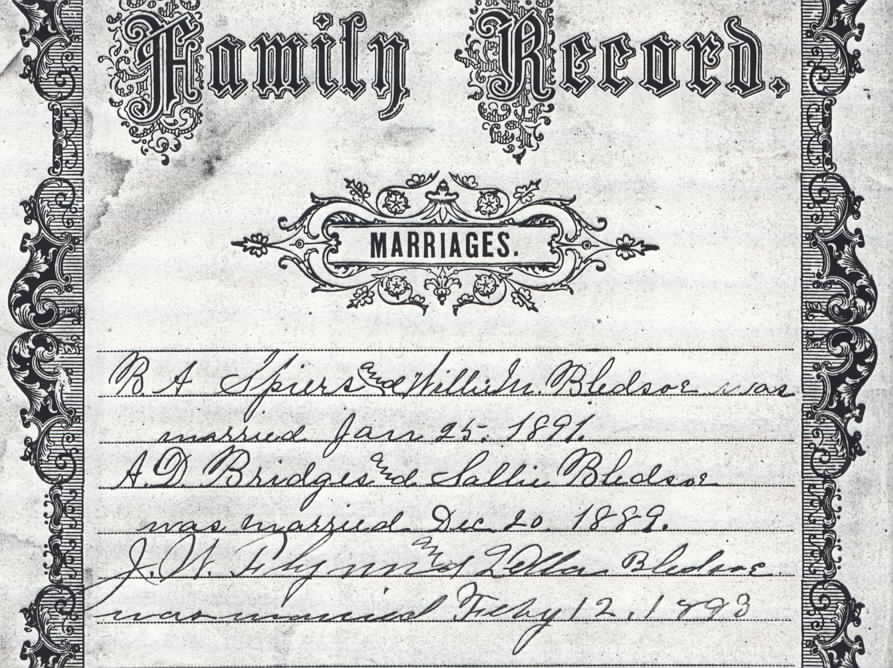 Family Record.
MARRIAGES.
B. A. Spiers and Willie M. Bledsoe was
married Jan 25. 1891.
A. D. Bridges and Sallie Bledsoe
was married Dec. 20, 1889.
J. W. Flynn and Bledsoe.
was married Feby 12, 1893